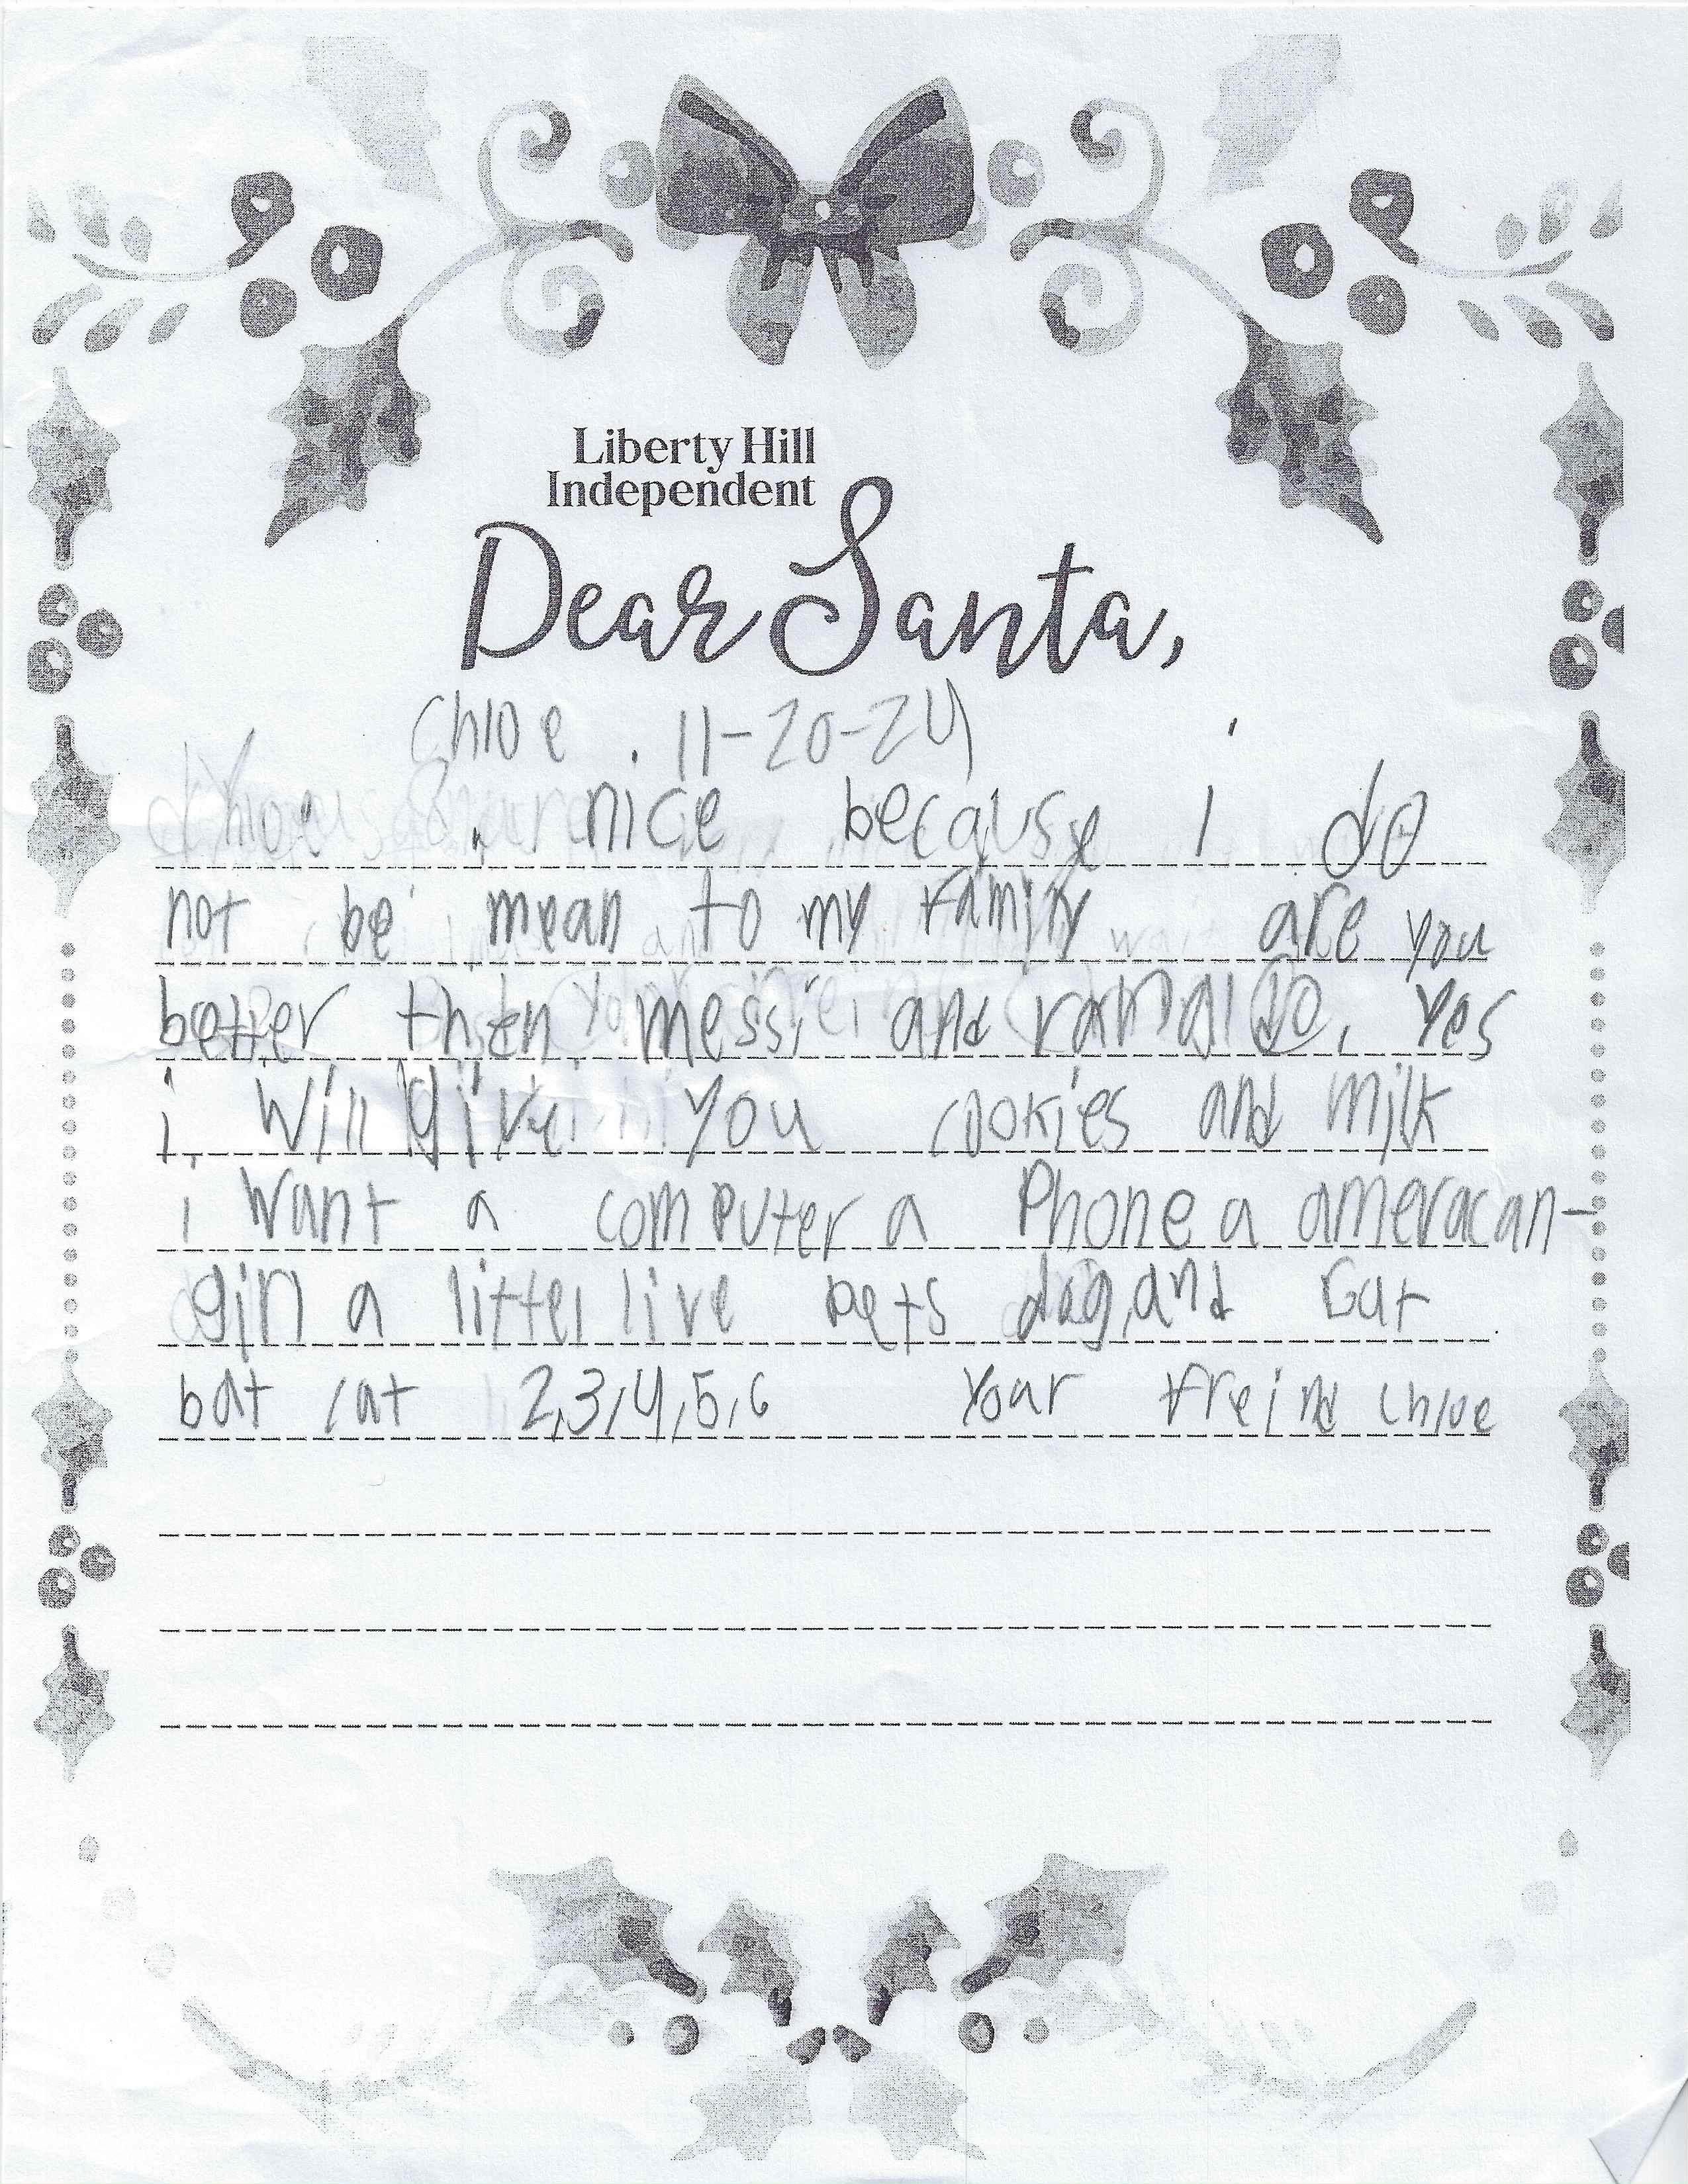 Liberty Hill
Independent
Dear Santa,
Chloe . 11-20-24
nice because I do
not be mean to my family are you
better then messi and ronaldo. Yes
i will give you cookies and milk
i want a computer a Phone a ameracan-
girl a litter live pets dog, and Cat
bat cat 2,3,4,5,6 Your freind Chloe